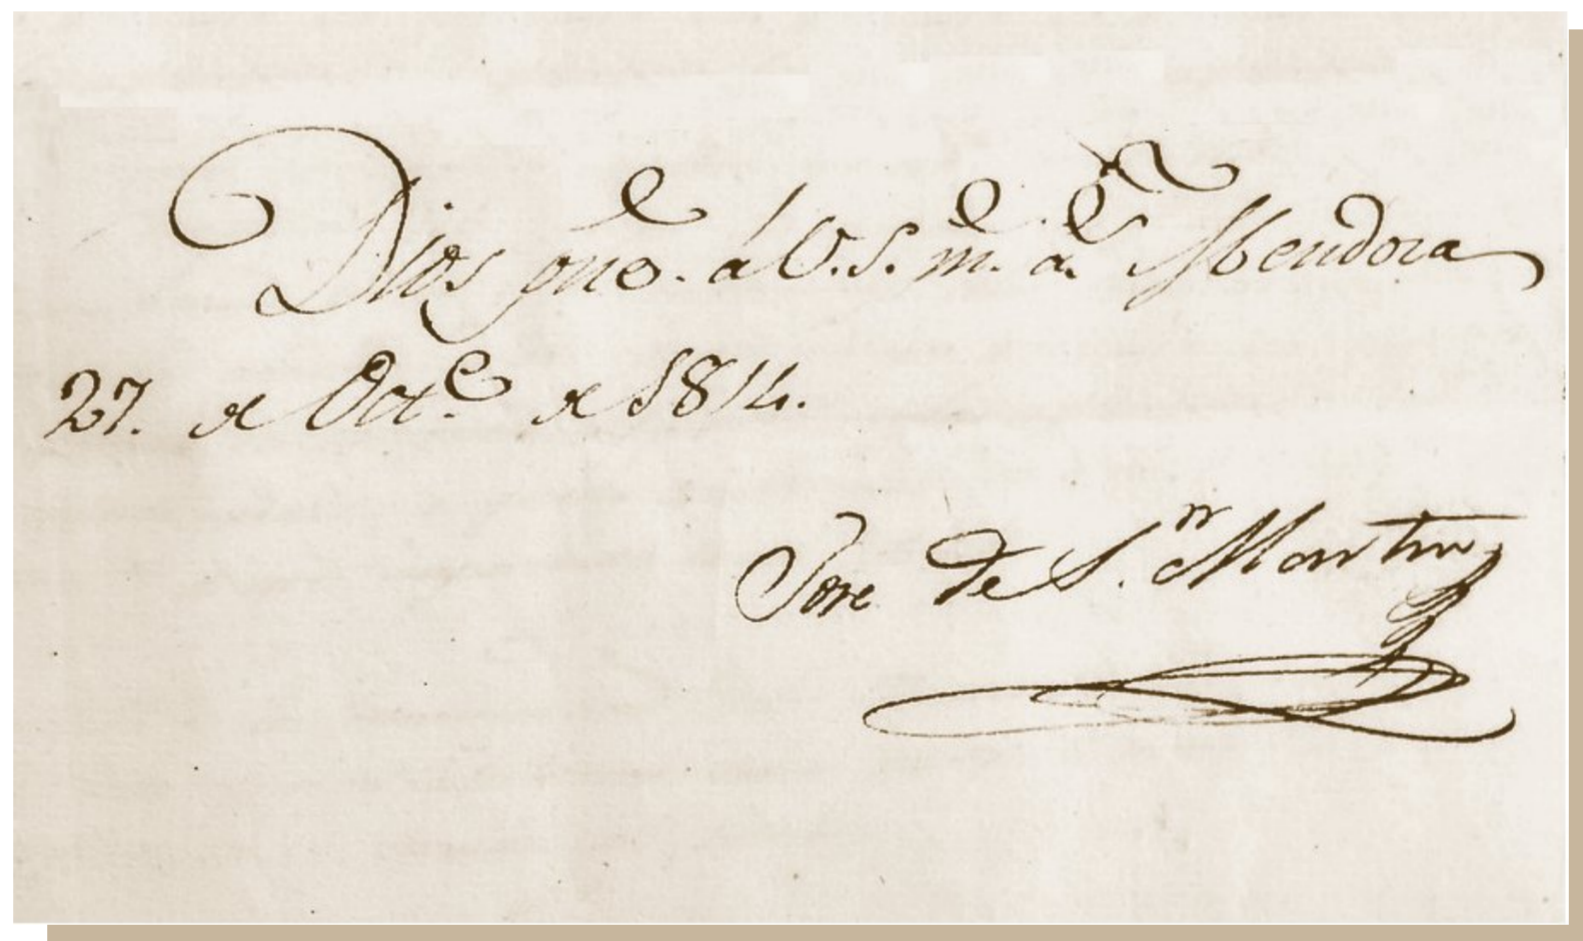 Dios gue. á V.S. m.s a.s Mendoza
27. de Oct.e de 1814.
Jose de S.n Martin